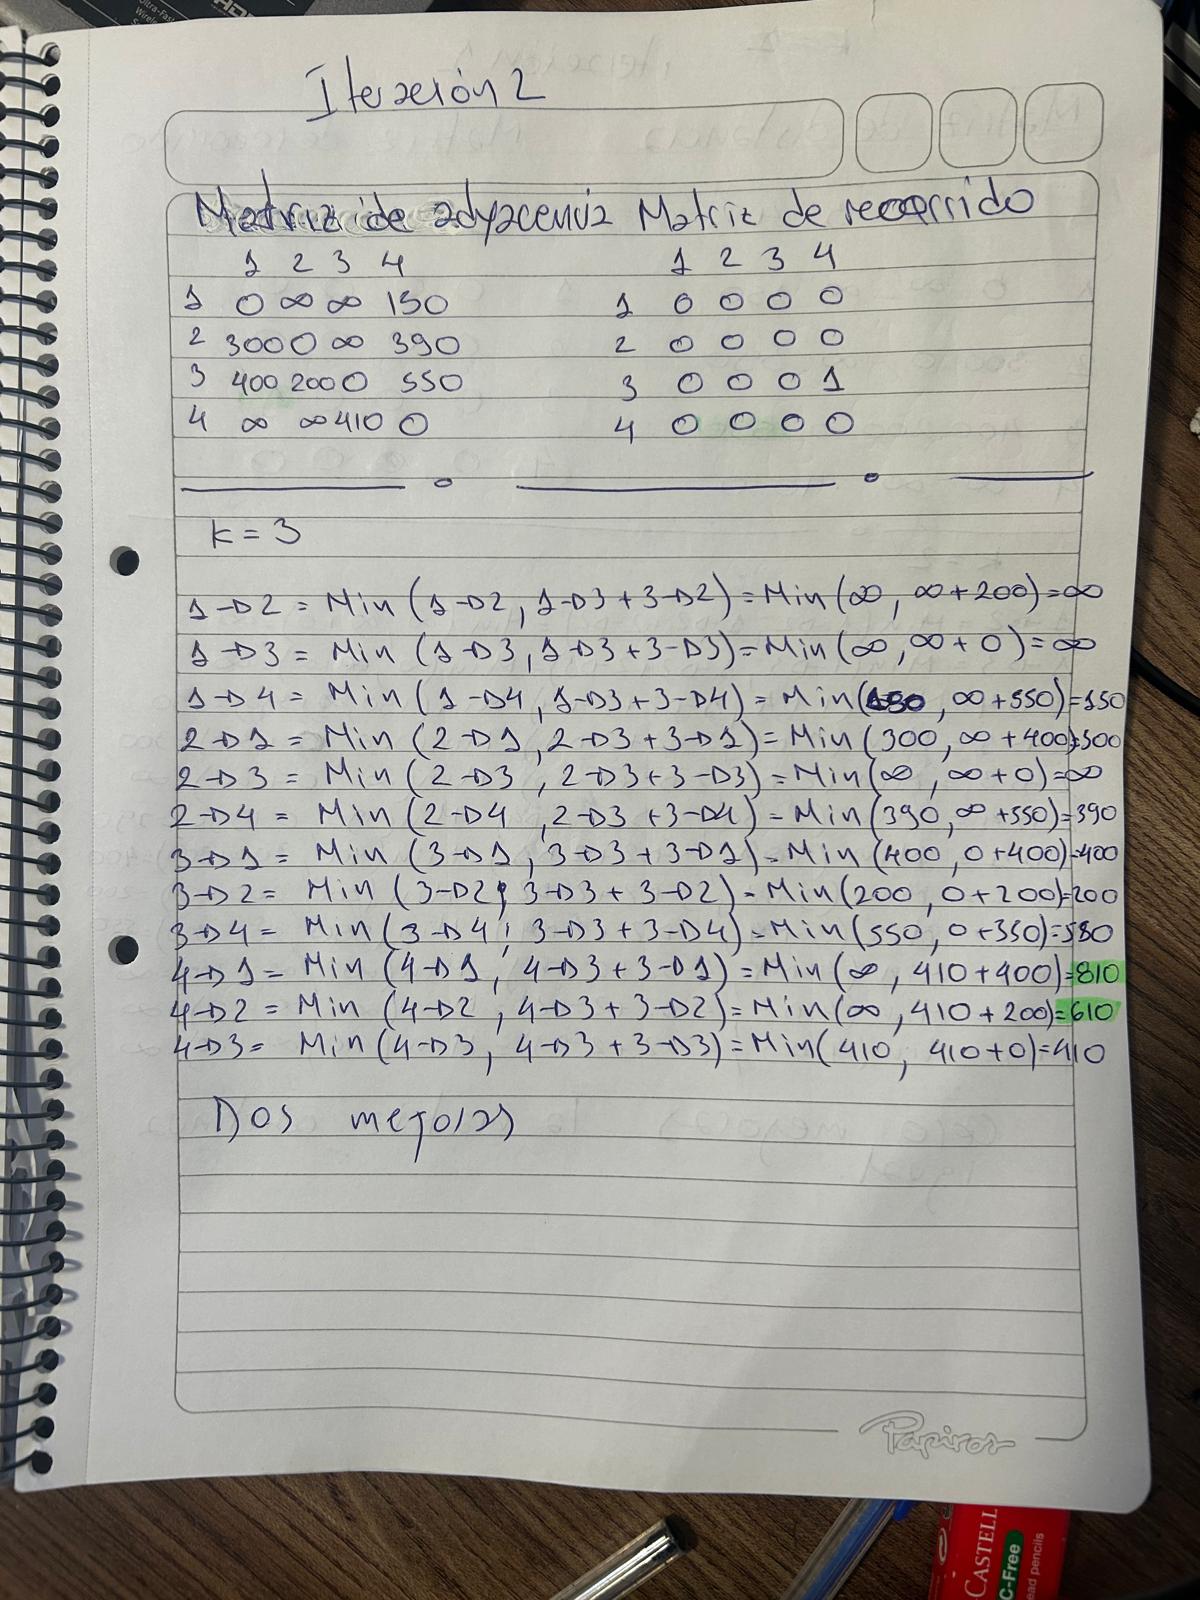 Iteración 2
Matriz de adyacencia Matriz de recorrido
1 2 3 4 1 2 3 4
1 0 ∞ ∞ 150 1 0 0 0 0
2 300 0 ∞ 390 2 0 0 0 0
3 400 200 0 550 3 0 0 0 1
4 ∞ ∞ 410 0 4 0 0 0 0
k = 3
1→2 = Min (1→2, 1→3 + 3→2) = Min (∞, ∞ + 200) = ∞
1→3 = Min (1→3, 1→3 + 3→3) = Min (∞, ∞ + 0) = ∞
1→4 = Min (1→4, 1→3 + 3→4) = Min (150, ∞ + 550) = 150
2→1 = Min (2→1, 2→3 + 3→1) = Min (300, ∞ + 400) = 300
2→3 = Min (2→3, 2→3 + 3→3) = Min (∞, ∞ + 0) = ∞
2→4 = Min (2→4, 2→3 + 3→4) = Min (390, ∞ + 550) = 390
3→1 = Min (3→1, 3→3 + 3→1) = Min (400, 0 + 400) = 400
3→2 = Min (3→2, 3→3 + 3→2) = Min (200, 0 + 200) = 200
3→4 = Min (3→4, 3→3 + 3→4) = Min (550, 0 + 550) = 550
4→1 = Min (4→1, 4→3 + 3→1) = Min (∞, 410 + 400) = 810
4→2 = Min (4→2, 4→3 + 3→2) = Min (∞, 410 + 200) = 610
4→3 = Min (4→3, 4→3 + 3→3) = Min (410, 410 + 0) = 410
Dos mejoras
Papiros
CASTELL
C-Free
ead pencils